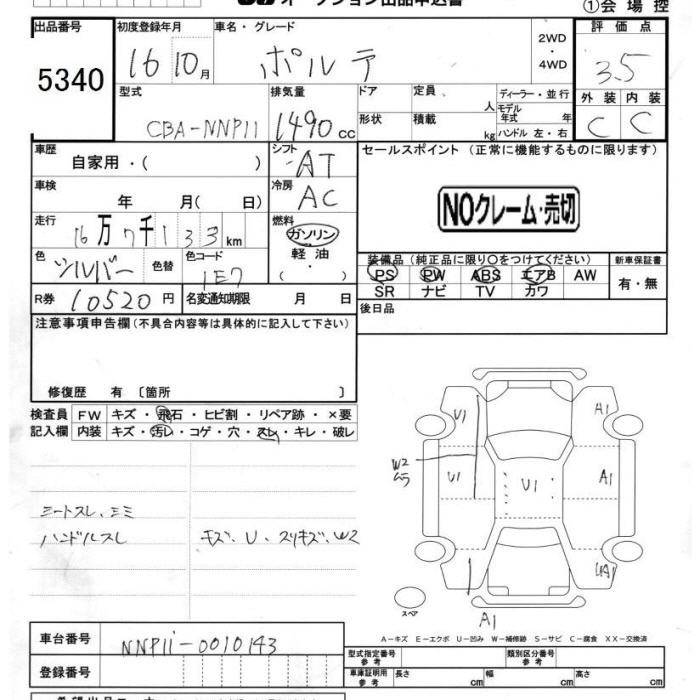 オークション出品申込書
①会場控
出品番号 初度登録年月 車名・グレード 評価点
5340
16 10月 ポルテ 2WD ・ 4WD 3.5
型式 排気量 ドア 定員 人 ディーラー・並行 外装 内装
CBA-NNP11 1490cc 形状 積載 kg モデル年式 年 ハンドル 左・右 C C
車歴 シフト セールスポイント (正常に機能するものに限ります)
自家用・( ) AT
車検 冷房
年 月( 日) AC NOクレーム・売切
走行 燃料
16万7千133km ガソリン
軽油
・
( )
色 色替 色コード 装備品 (純正品に限り○をつけてください) 新車保証書
シルバー 1E7 PS PW ABS エアB AW 有・無
SR ナビ TV カワ
R券 10520円 名変通知期限 月 日 後日品
注意事項申告欄 (不具合内容等は具体的に記入して下さい)
修復歴 有 〔箇所 〕
検査員 FW キズ・飛石・ヒビ割・リペア跡・×要
記入欄 内装 キズ・汚レ・コゲ・穴・スレ・キレ・破レ
U1 A1
W2
ムラ
U1 U1 A1
ハンドルスレ キズ、U、スリキズ、W2
UA1
スペア
A1
A-キズ E-エクボ U-凹み W-補修跡 S-サビ C-腐食 XX-交換済
車台番号 NNP11-0010143
登録番号
型式指定番号 参考 類別区分番号 参考
車庫証明用 参考 長さ cm 幅 cm 高さ cm